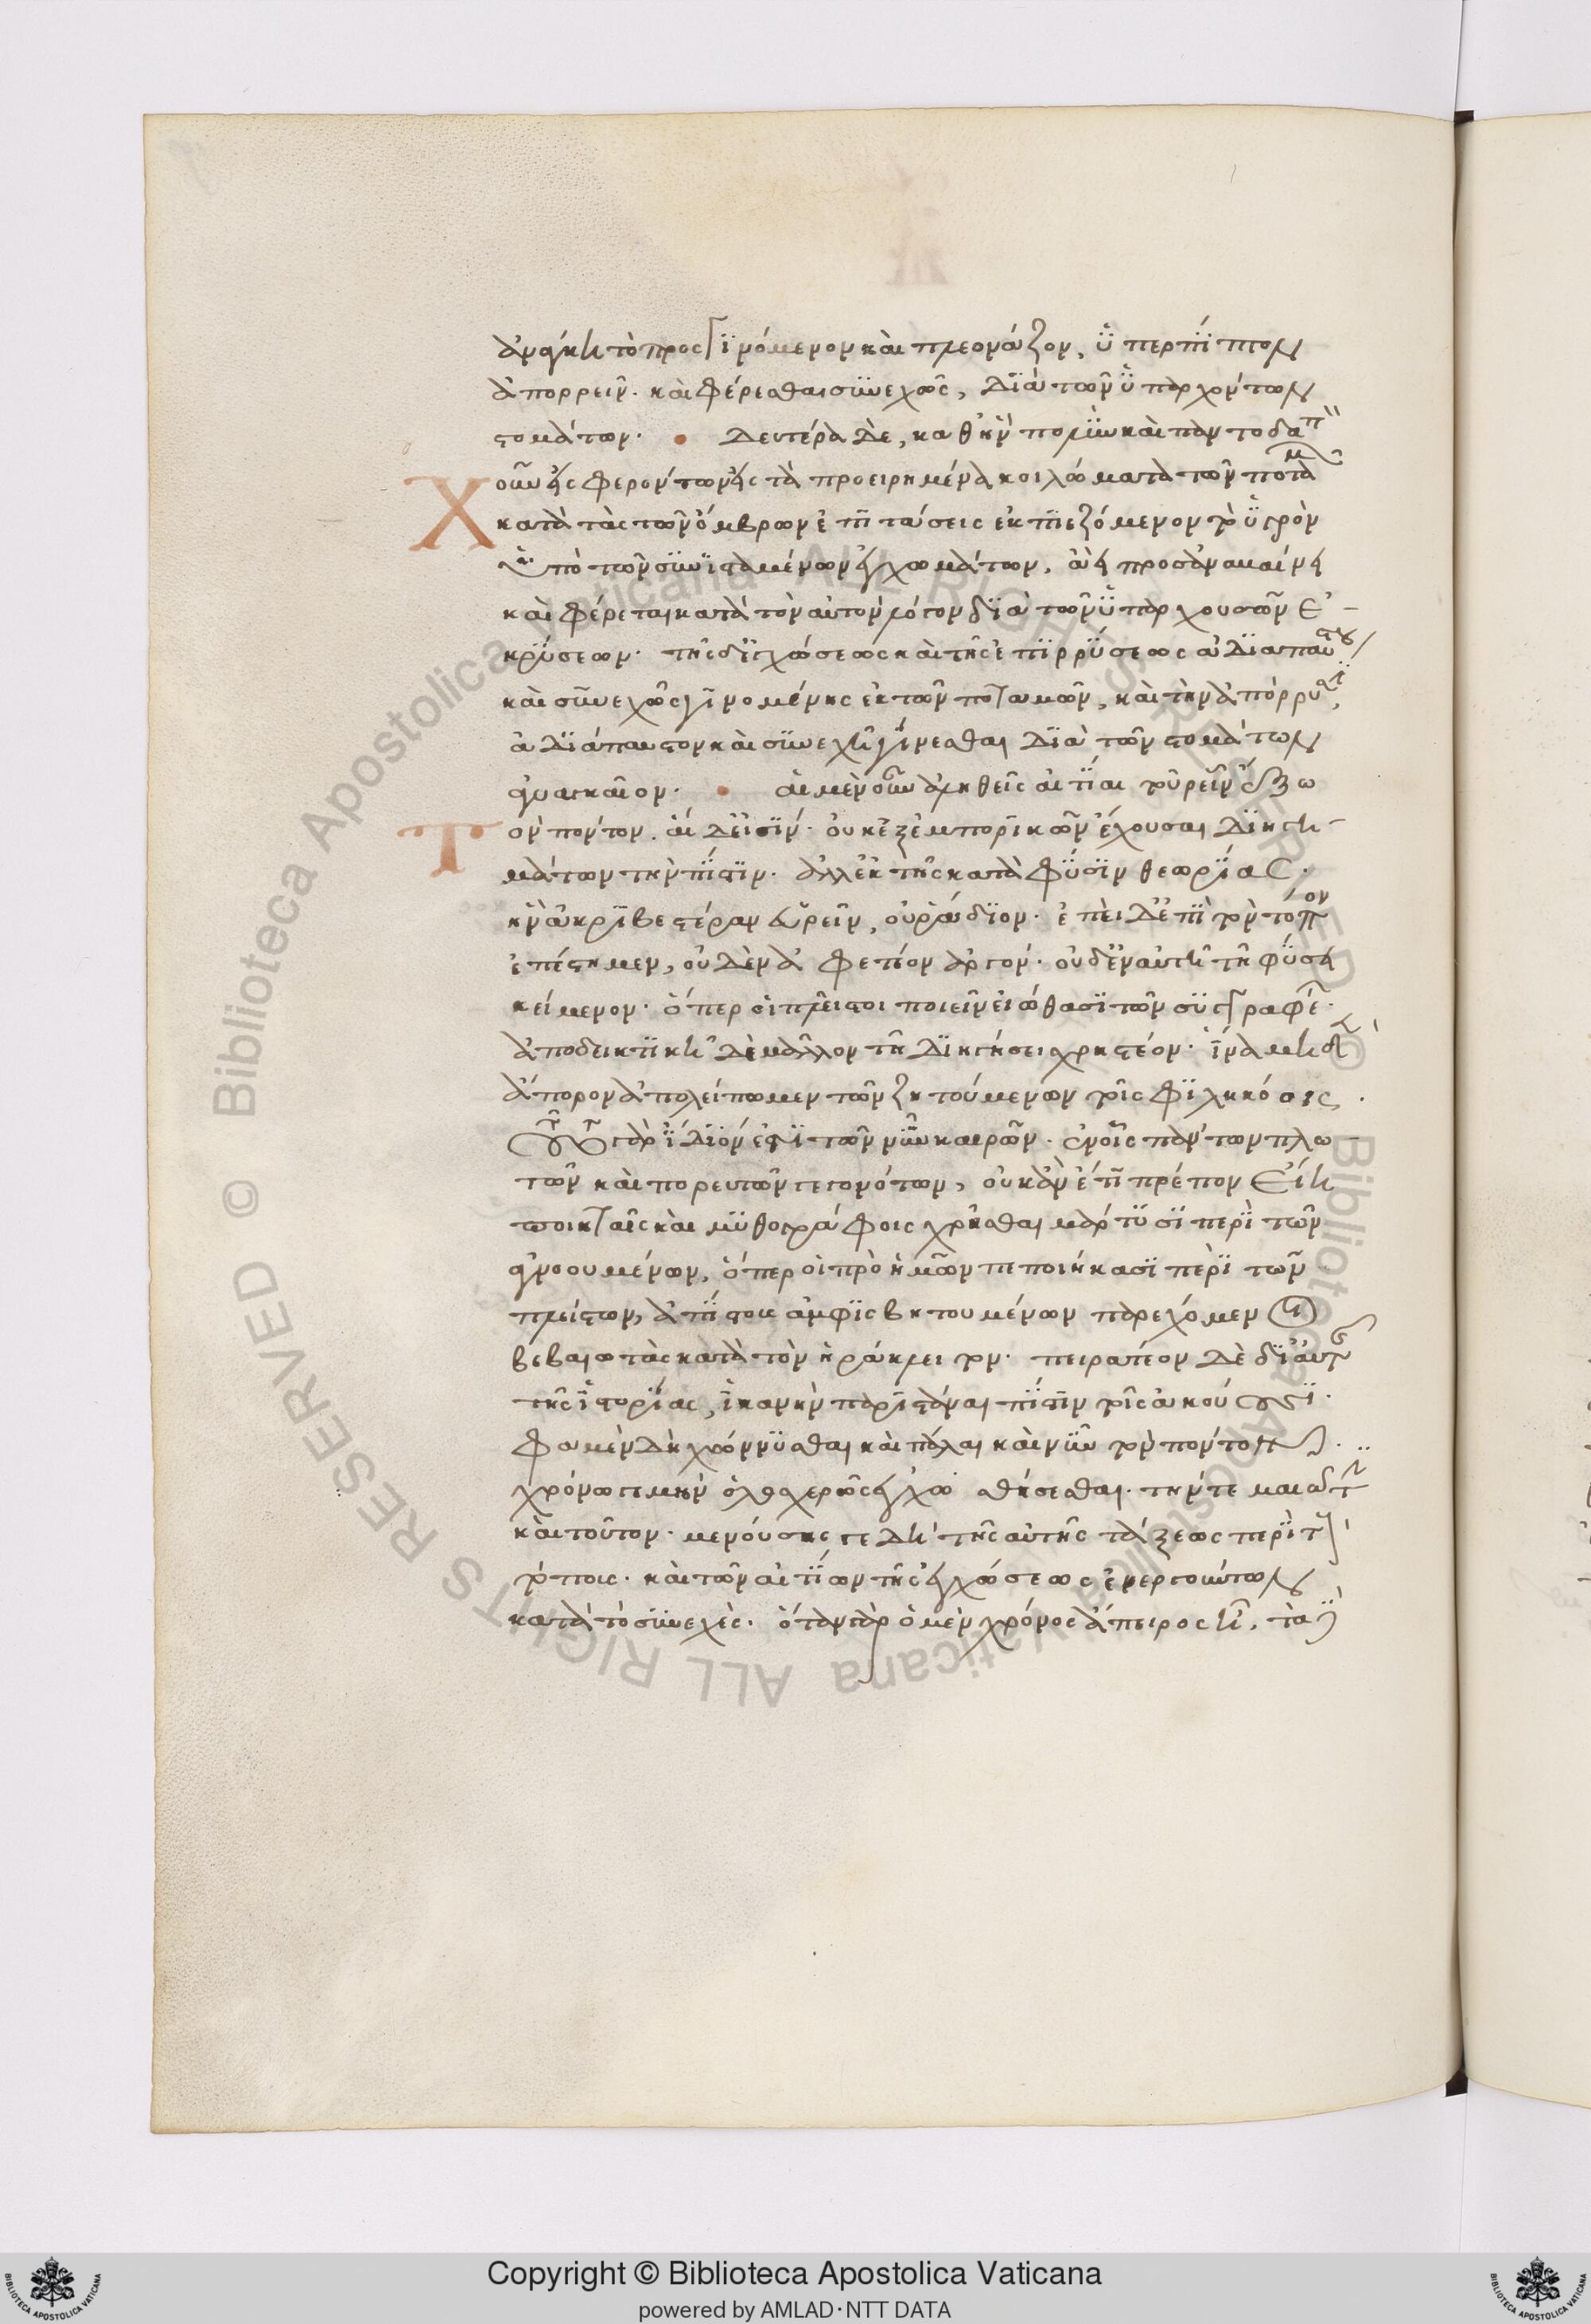 ἀνάγκη τὸ προσγινόμενον καὶ πλεονάζον, ὑπερπίπτον
ἀπορρεῖν· καὶ φέρεσθαι συνεχῶς, διὰ τῶν ὑπαρχόντων
στομάτων· δευτέρα δὲ, καθ' ἣν πολὺν καὶ παντοδαπὸν
Χοῦν εἰσφερόντων εἰς τὰ προειρημένα κοιλώματα τῶν ποταμῶν
κατὰ τὰς τῶν ὄμβρων ἐπιτάσεις ἐκπιεζόμενον τὸ ὑγρὸν
ὑπὸ τῶν συνισταμένων ἐγχωμάτων, ἀεὶ προσαναβαίνει
καὶ φέρεται κατὰ τὸν αὐτὸν λόγον διὰ τῶν ὑπαρχουσῶν ἐ-
κρύσεων· τῆς δ' ἰσχώσεως καὶ τῆς ἐπιρρύσεως ἀδιαπαύστου
καὶ συνεχῶς γινομένης ἐκ τῶν ποταμῶν, καὶ τὴν ἀπόρρυσιν,
ἀδιάπαυστον καὶ συνεχῆ γίνεσθαι διὰ τῶν στομάτων
ἀναγκαῖον· αἱ μὲν οὖν ἀληθεῖς αἰτίαι τοῦ ῥεῖν ἔξω
Τὸν πόντον, αἵδ' εἰσίν· οὐκ ἐξ ἐμπορικῶν ἔχουσαι διηγη-
μάτων τὴν πίστιν· ἀλλ' ἐκ τῆς κατὰ φύσιν θεωρίας·
ἧς ἀκριβεστέραν εὑρεῖν, οὐ ῥάδιον· ἐπεὶ δ' ἐπὶ τὸν τόπον
ἐπέστημεν, οὐδὲν ἀφετέον ἀργόν· οὐδ' ἐν αὐτῇ τῇ φύσει
κείμενον· ὅπερ οἱ πλεῖστοι ποιεῖν εἰώθασι τῶν συγγραφέων·
ἀποδεικτικῇ δὲ μᾶλλον τῇ διηγήσει χρηστέον· ἵνα μηδὲν
ἄπορον ἀπολείπωμεν τῶν ζητουμένων τοῖς φιληκόοις·
τοῦτο γὰρ ἴδιόν ἐστι τῶν νῦν καιρῶν· ἐν οἷς πάντων πλω-
τῶν καὶ πορευτῶν γεγονότων, οὐκ ἂν ἔτι πρέπον εἴη
ποιηταῖς καὶ μυθογράφοις χρῆσθαι μάρτυσι περὶ τῶν
ἀγνοουμένων, ὅπερ οἱ πρὸ ἡμῶν πεποιήκασι περὶ τῶν
πλείστων, ἀπίστους ἀμφισβητουμένων παρεχόμενοι
βεβαιωτὰς κατὰ τὸν ἡράκλειτον· πειρατέον δὲ δι' αὐτῆς
τῆς ἱστορίας, ἱκανὴν παριστάναι πίστιν τοῖς ἀκούουσι·
φαμὲν δὴ χώννυσθαι καὶ πάλαι καὶ νῦν τὸν πόντον·
χρόνω γε μὴν ὁλοσχερῶς ἐγχωσθήσεσθαι· τήν τε μαιῶτιν
καὶ τοῦτον· μενούσης γε δὴ τῆς αὐτῆς τάξεως περὶ τοὺς
τόπους· καὶ τῶν αἰτίων τῆς ἐγχώσεως ἐνεργούντων
κατὰ τὸ συνεχὲς· ὅταν γὰρ ὁ μὲν χρόνος ἄπειρος ἦ, τὰ